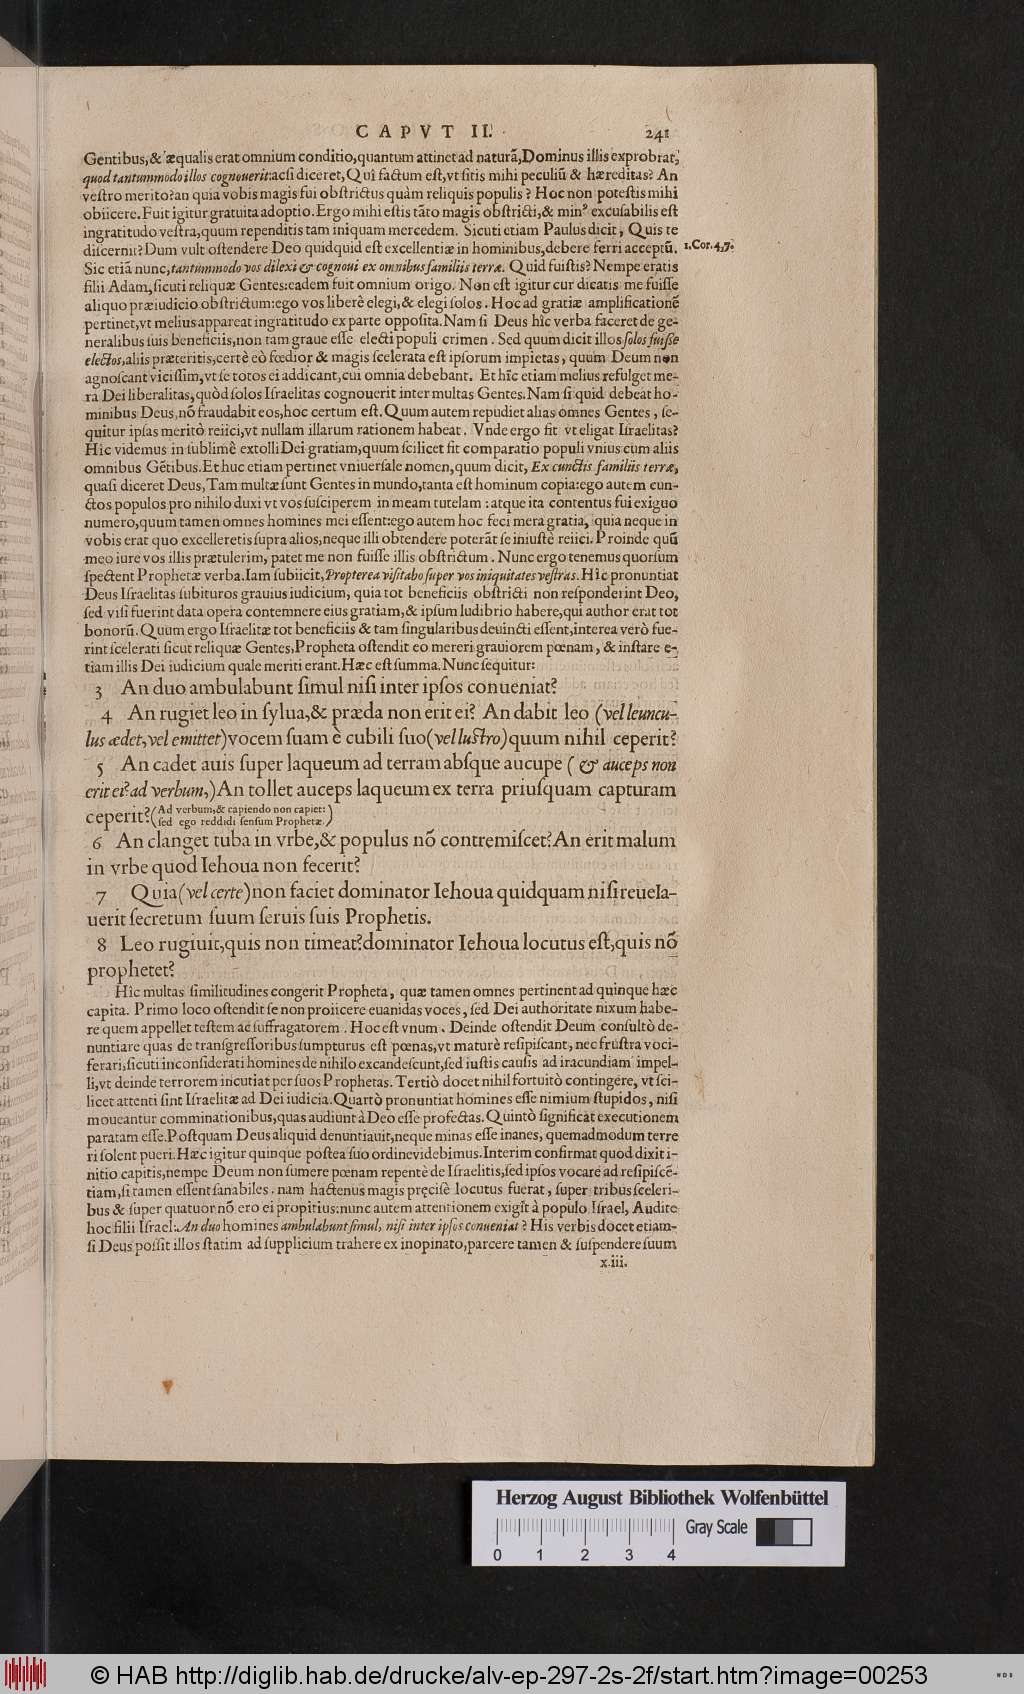 CAPVT II. 241
Gentibus,& æqualis erat omnium conditio,quantum attinet ad naturã,Dominus illis exprobrat,
quod tantummodo illos cognouerit:acsi diceret,Quî factum est,vt sitis mihi peculiũ & hæreditas? An
vestro merito?an quia vobis magis fui obstrictus quàm reliquis populis? Hoc non potestis mihi
obiicere. Fuit igitur gratuita adoptio. Ergo mihi estis tãto magis obstricti,& minꝰ excusabilis est
ingratitudo vestra,quum rependitis tam iniquam mercedem. Sicuti etiam Paulus dicit, Quis te
discernit? Dum vult ostendere Deo quidquid est excellentiæ in hominibus,debere ferri acceptũ. 1.Cor.4,7.
Sic etiã nunc,tantummodo vos dilexi & cognoui ex omnibus familiis terræ. Quid fuistis? Nempe eratis
filii Adam,sicuti reliquæ Gentes:eadem fuit omnium origo. Non est igitur cur dicatis me fuisse
aliquo præiudicio obstrictum:ego vos liberè elegi,& elegi solos. Hoc ad gratiæ amplificationẽ
pertinet,vt melius appareat ingratitudo ex parte opposita. Nam si Deus hîc verba faceret de ge-
neralibus suis beneficiis,non tam graue esse electi populi crimen. Sed quum dicit illos solos fuisse
electos,aliis præteritis,certè eò fœdior & magis scelerata est ipsorum impietas, quum Deum non
agnoscant vicissim,vt se totos ei addicant,cui omnia debebant. Et hîc etiam melius refulget me-
ra Dei liberalitas,quòd solos Israelitas cognouerit inter multas Gentes. Nam si quid debeat ho-
minibus Deus,nõ fraudabit eos,hoc certum est. Quum autem repudiet alias omnes Gentes, se-
quitur ipsas meritò reiici,vt nullam illarum rationem habeat. Vnde ergo fit vt eligat Israelitas?
Hic videmus in sublimè extolli Dei gratiam,quum scilicet fit comparatio populi vnius cum aliis
omnibus Gẽtibus. Et huc etiam pertinet vniuersale nomen,quum dicit, Ex cunctis familiis terræ,
quasi diceret Deus,Tam multæ sunt Gentes in mundo,tanta est hominum copia:ego autem cun-
ctos populos pro nihilo duxi vt vos susciperem in meam tutelam:atque ita contentus fui exiguo
numero,quum tamen omnes homines mei essent:ego autem hoc feci mera gratia, quia neque in
vobis erat quo excelleretis supra alios,neque illi obtendere poterãt se iniustè reiici. Proinde quũ
meo iure vos illis prætulerim, patet me non fuisse illis obstrictum. Nunc ergo tenemus quorsum
spectent Prophetæ verba. Iam subiicit,Propterea visitabo super vos iniquitates vestras. Hîc pronuntiat
Deus Israelitas subituros grauius iudicium, quia tot beneficiis obstricti non responderint Deo,
sed visi fuerint data opera contemnere eius gratiam,& ipsum ludibrio habere,qui author erat tot
bonorũ. Quum ergo Israelitæ tot beneficiis & tam singularibus deuincti essent,interea verò fue-
rint scelerati sicut reliquæ Gentes,Propheta ostendit eo mereri grauiorem pœnam, & instare e-
tiam illis Dei iudicium quale meriti erant. Hæc est summa. Nunc sequitur:
3 An duo ambulabunt simul nisi inter ipsos conueniat?
4 An rugiet leo in sylua,& præda non erit ei? An dabit leo (vel leuncu-
lus ædet, vel emittet) vocem suam è cubili suo (vel lustro) quum nihil ceperit?
5 An cadet auis super laqueum ad terram absque aucupe ( & auceps non
erit ei? ad verbum,) An tollet auceps laqueum ex terra priusquam capturam
ceperit? (Ad verbum,& capiendo non capiet:
sed ego reddidi sensum Prophetæ.)
6 An clanget tuba in vrbe,& populus nõ contremiscet? An erit malum
in vrbe quod Iehoua non fecerit?
7 Quia (vel certe) non faciet dominator Iehoua quidquam nisi reuela-
uerit secretum suum seruis suis Prophetis.
8 Leo rugiuit,quis non timeat? dominator Iehoua locutus est,quis nõ
prophetet?
Hîc multas similitudines congerit Propheta, quæ tamen omnes pertinent ad quinque hæc
capita. Primo loco ostendit se non proiicere euanidas voces, sed Dei authoritate nixum habe-
re quem appellet testem ac suffragatorem. Hoc est vnum. Deinde ostendit Deum consultò de-
nuntiare quas de transgressoribus sumpturus est pœnas,vt maturè resipiscant, nec frustra voci-
ferari,sicuti inconsiderati homines de nihilo excandescunt,sed iustis causis ad iracundiam impel-
li,vt deinde terrorem incutiat per suos Prophetas. Tertiò docet nihil fortuitò contingere, vt sci-
licet attenti sint Israelitæ ad Dei iudicia. Quartò pronuntiat homines esse nimium stupidos, nisi
moueantur comminationibus,quas audiunt à Deo esse profectas. Quintò significat executionem
paratam esse. Postquam Deus aliquid denuntiauit,neque minas esse inanes, quemadmodum terre
ri solent pueri. Hæc igitur quinque postea suo ordine videbimus. Interim confirmat quod dixit i-
nitio capitis,nempe Deum non sumere pœnam repentè de Israelitis,sed ipsos vocare ad resipiscẽ-
tiam,si tamen essent sanabiles. nam hactenus magis pręcisè locutus fuerat, super tribus sceleri-
bus & super quatuor nõ ero ei propitius:nunc autem attentionem exigit à populo Israel, Audite
hoc filii Israel:An duo homines ambulabunt simul, nisi inter ipsos conueniat? His verbis docet etiam-
si Deus possit illos statim ad supplicium trahere ex inopinato,parcere tamen & suspendere suum
x.iii.
Herzog August Bibliothek Wolfenbüttel
Gray Scale
0 1 2 3 4
© HAB http://diglib.hab.de/drucke/alv-ep-297-2s-2f/start.htm?image=00253
WDB